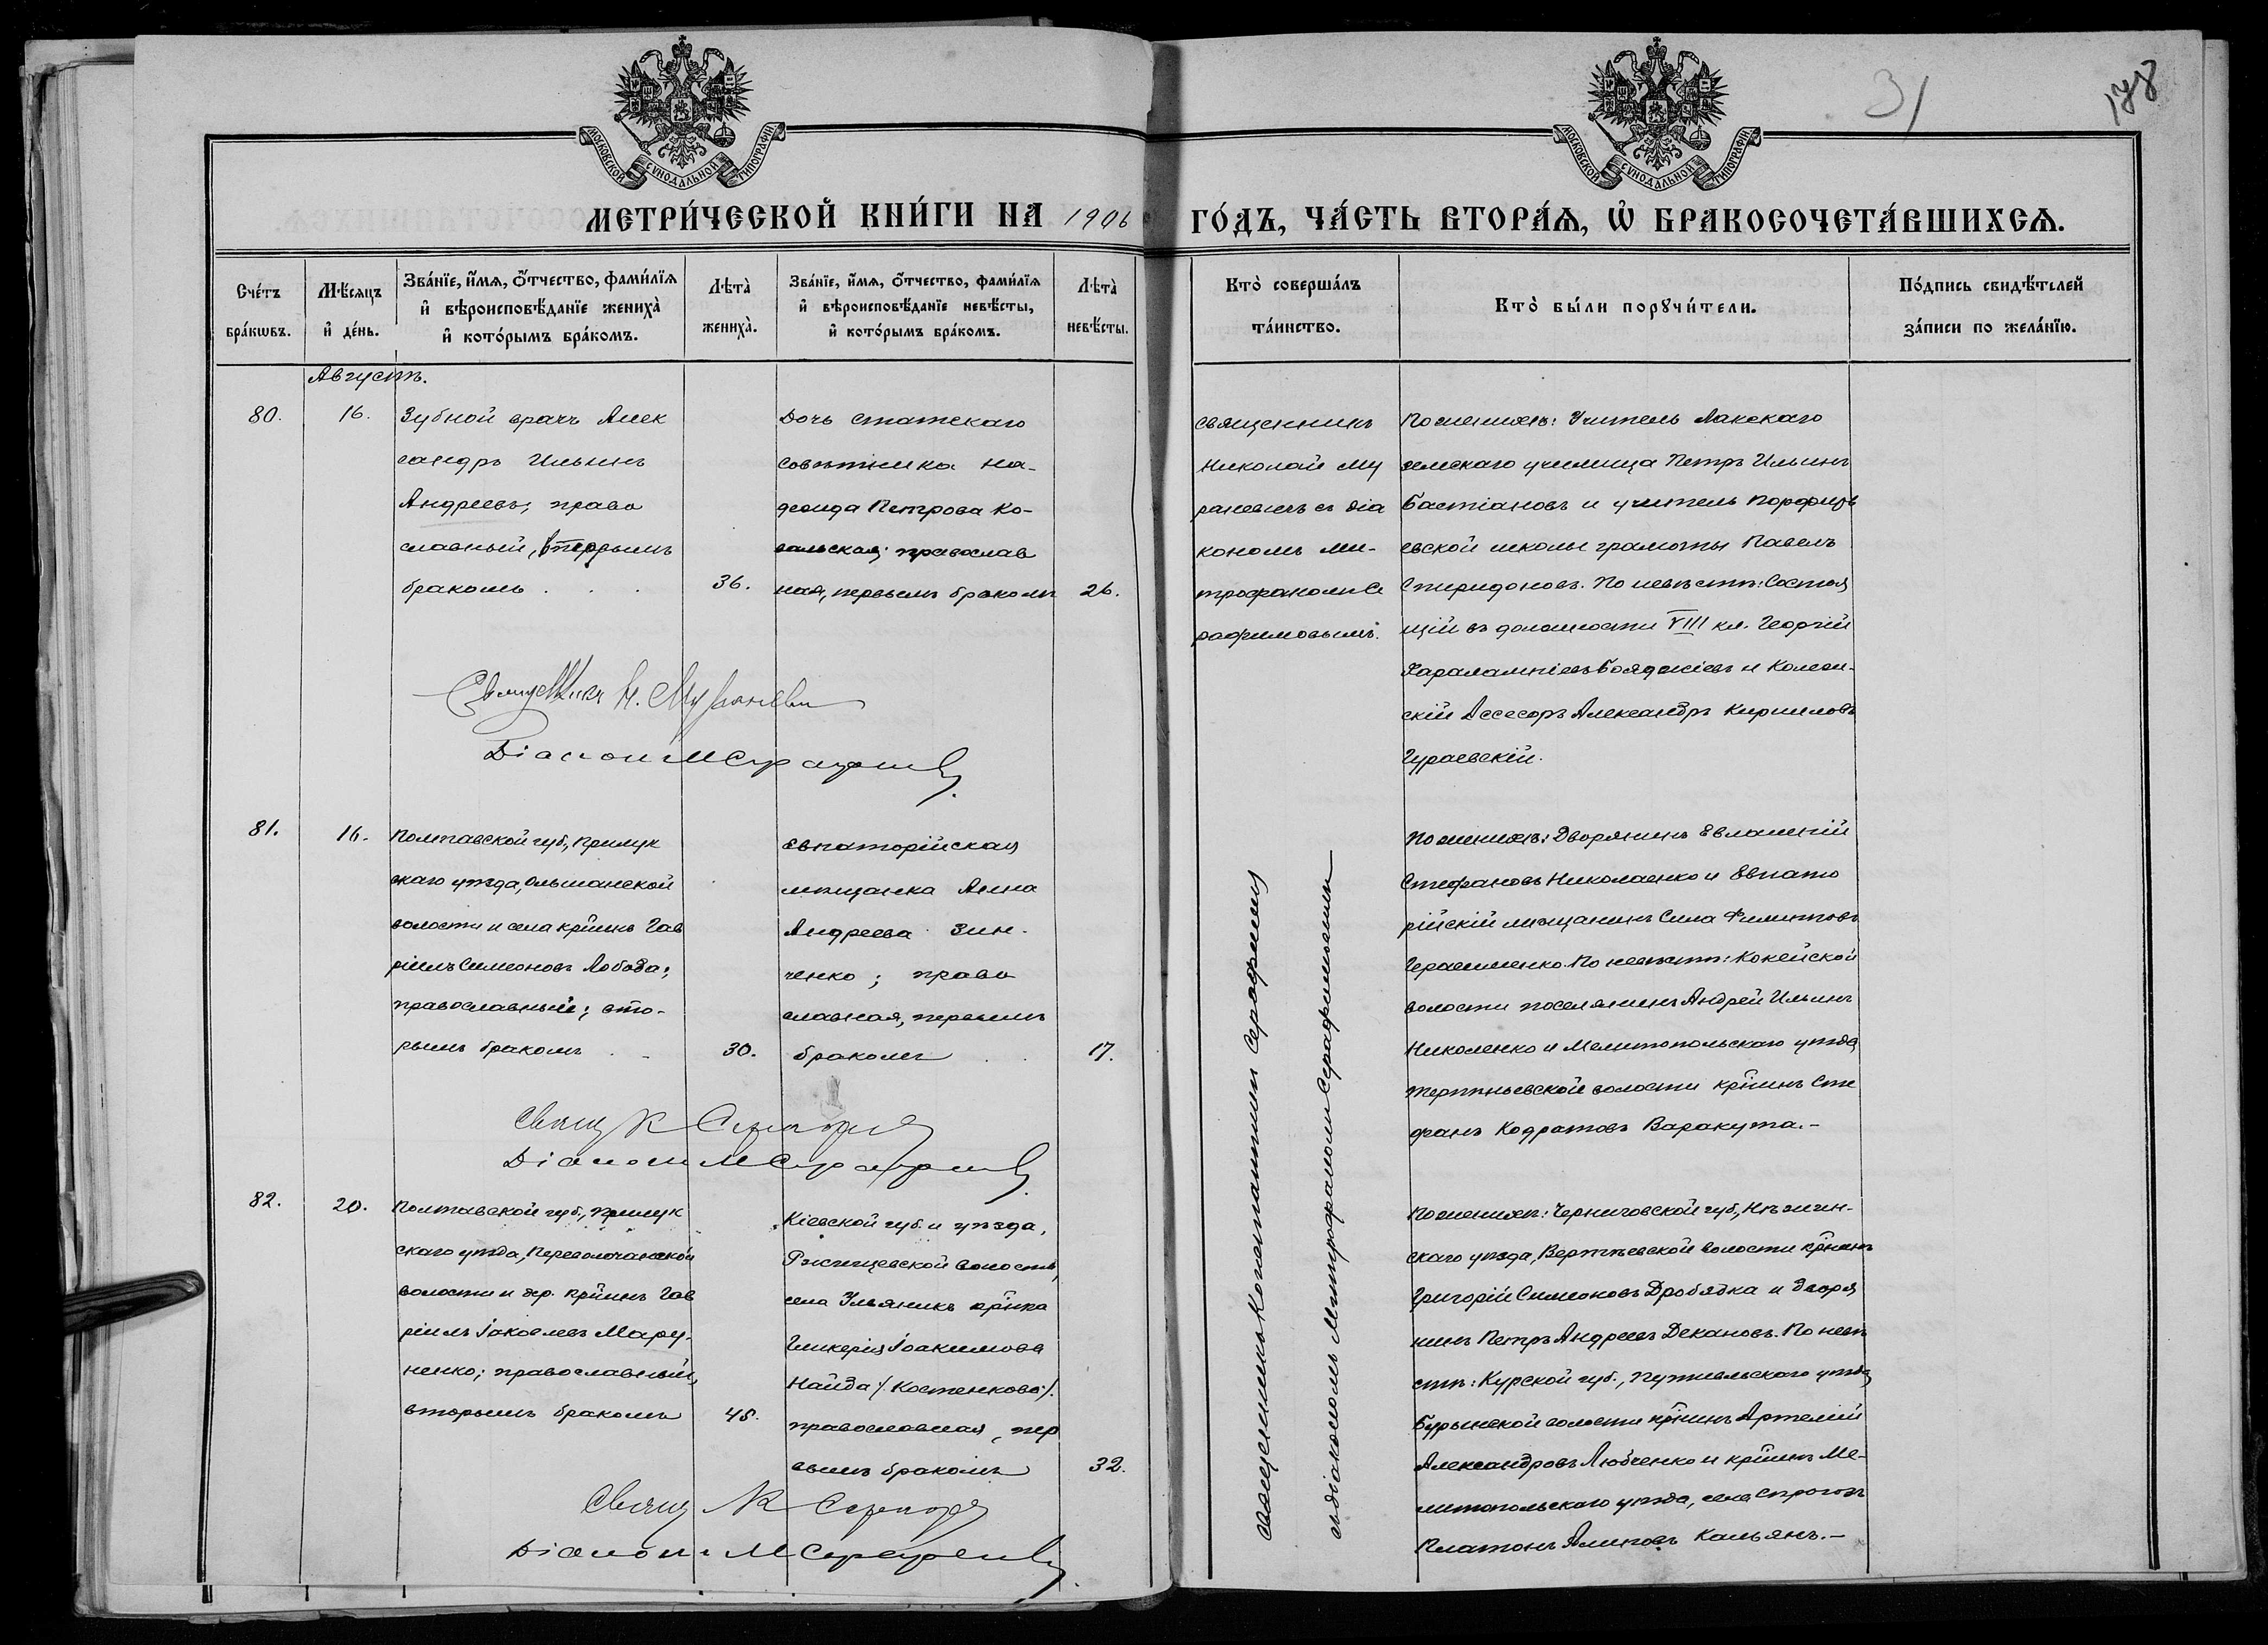 31
178
МОСКОВСКОЙ СУНОДАЛЬНОЙ ТИПОГРАФІИ
МОСКОВСКОЙ СУНОДАЛЬНОЙ ТИПОГРАФІИ
МЕТРИ́ЧЕСКОЙ КНИ́ГИ НА 1906
ГО́ДЪ, ЧА́СТЬ ВТОРА́Ѧ, Ѡ҆ БРАКОСОЧЕТА́ВШИХСѦ.
Сче́тъ
бра́кѡвъ.
Мѣ́сѧцъ
и҆ де́нь.
Зва́нїе, и҆́мѧ, ѻ҆́тчество, фами́лїѧ
и҆ вѣроисповѣ́данїе жениха̀
и҆ кото́рымъ бра́комъ.
Лѣта̀
жениха̀.
Зва́нїе, и҆́мѧ, ѻ҆́тчество, фами́лїѧ
и҆ вѣроисповѣ́данїе невѣ́сты,
и҆ кото́рымъ бра́комъ.
Лѣта̀
невѣ́сты.
Кто̀ соверша́лъ
та́инство.
Кто̀ бы́ли порꙋчи́тели.
По́дпись свидѣ́телей
за́писи по жела́нїю.
Августъ.
80.
16.
Зубной врачъ Алек
сандръ Ильинъ
Андреевъ; право
славный, вторымъ
бракомъ . . .
36.
Дочь статскаго
совѣтника На-
дежда Петрова Ко-
вальская; православ
ная, первымъ бракомъ
26.
Священникъ
Николай Му
раневичъ съ діа
кономъ Ми-
трофаномъ Се
рафимовымъ.
По женихѣ: Учитель Лакскаго
земскаго училища Петръ Ильинъ
Бастіановъ и учитель Порфирь
евской школы грамоты Павелъ
Спиридоновъ. По невѣстѣ: Состоя
щій въ должности VIII кл. Георгій
Харалампіевъ Бояджіевъ и Коллеж-
скій Ассесоръ Александръ Кирилловъ
Гураевскій.
Священникъ Н. Мураневич
Діакон М Серафимов
81.
16.
Полтавской губ., Прилук
скаго уѣзда, Ольшанской
волости и села кр̃нинъ Гав
ріилъ Симеоновъ Лобода;
православный; вто-
рымъ бракомъ . .
30.
Евпаторійская
мѣщанка Анна
Андреева Зин-
ченко; право
славная, первымъ
бракомъ . .
17.
По женихѣ: Дворянинъ Евлампій
Стефановъ Николаенко и Евпато
рійскій мѣщанинъ Сила Филиповъ
Герасименко. По невѣстѣ: Кокейской
волости поселянинъ Андрей Ильинъ
Николенко и Мелитопольскаго уѣзда
Терпѣньевской волости кр̃нинъ Сте
фанъ Кодратовъ Варакута.-
Свящ К Серафим
Діакон М Серафимов
82.
20.
Полтавской губ., Прилук
скаго уѣзда, Переволочанской
волости и дер. кр̃нинъ Гав
ріилъ Іаковлевъ Мару-
ненко; православный,
вторымъ бракомъ
48.
Кіевской губ. и уѣзда,
Ржищевской волости,
села Ульяникъ кр̃нка
Гликерія Іоакимова
Найда /: Костенкова:/.
православная, пер
вымъ бракомъ
32.
По женихѣ: Черниговской губ., Нѣжин-
скаго уѣзда, Вертѣевской волости кр̃нинъ
Григорій Симеоновъ Дробядка и дворя
нинъ Петръ Андреевъ Декановъ. По невѣ
стѣ: Курской губ., Путивльскаго уѣзда
Бурынской волости кр̃нинъ Артемій
Александровъ Любченко и кр̃нинъ Ме-
литопольскаго уѣзда, села Строгоз
Платонъ Алиповъ Кальянъ.-
Свящ К Серафим
Діакон М Серафимов
Священникъ Константинъ Серафимъ
съ діакономъ Митрофаномъ Серафимовымъ